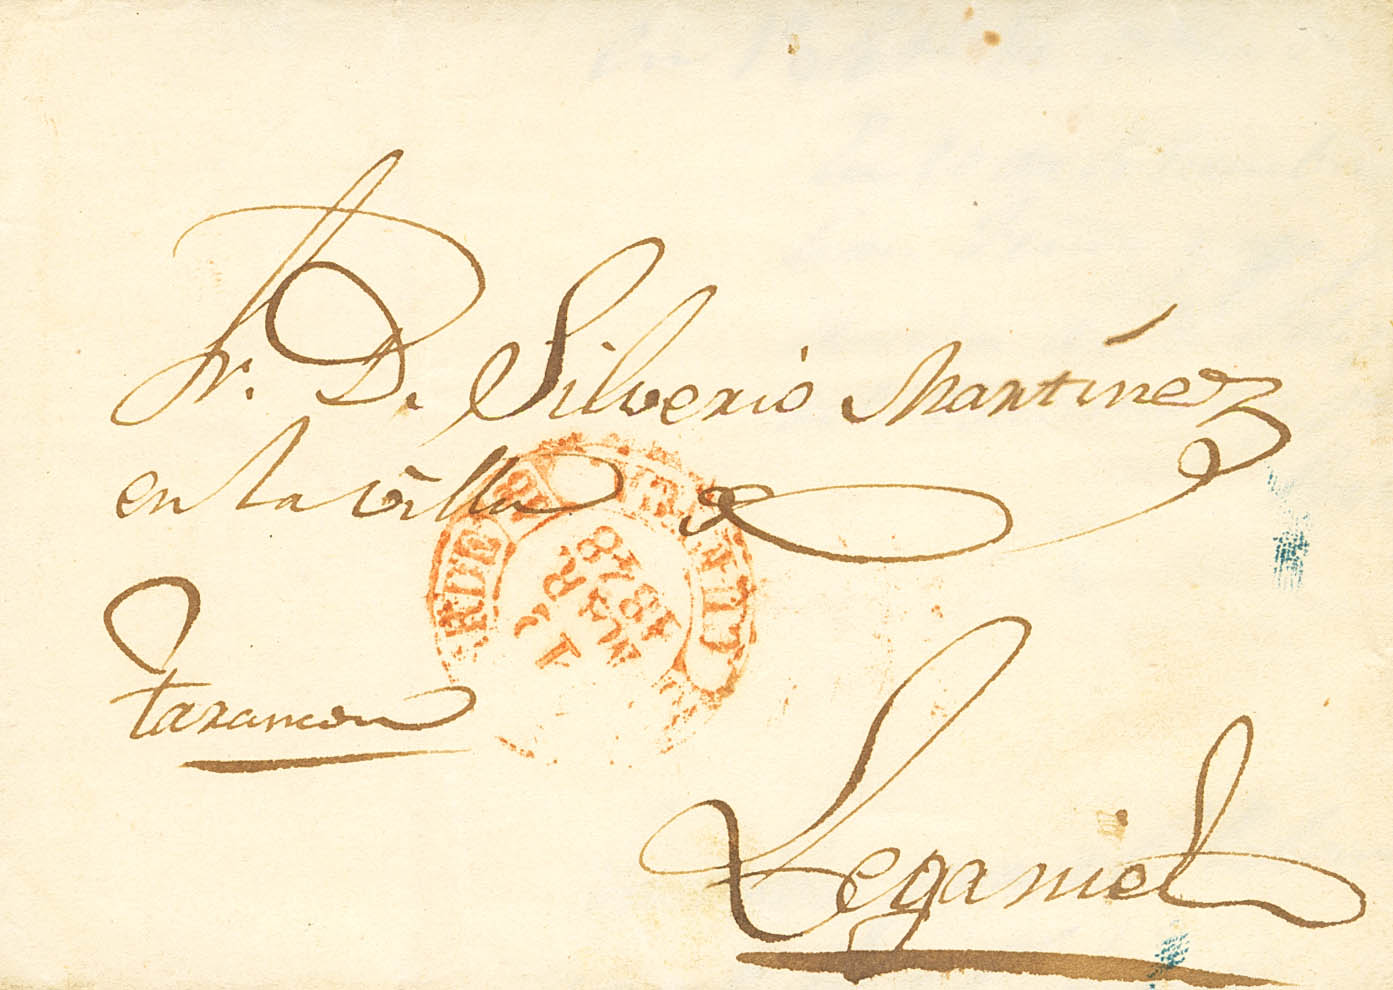 Sr. D. Silverio Martínez
en la villa de
tarancon
Leganiel
1842